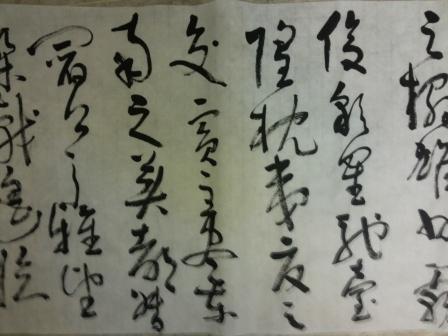 之榻雄州霧
俊彩星馳臺
隍枕夷夏之
交賓主盡東
南之美都督
閻公之雅望
棨戟遙臨